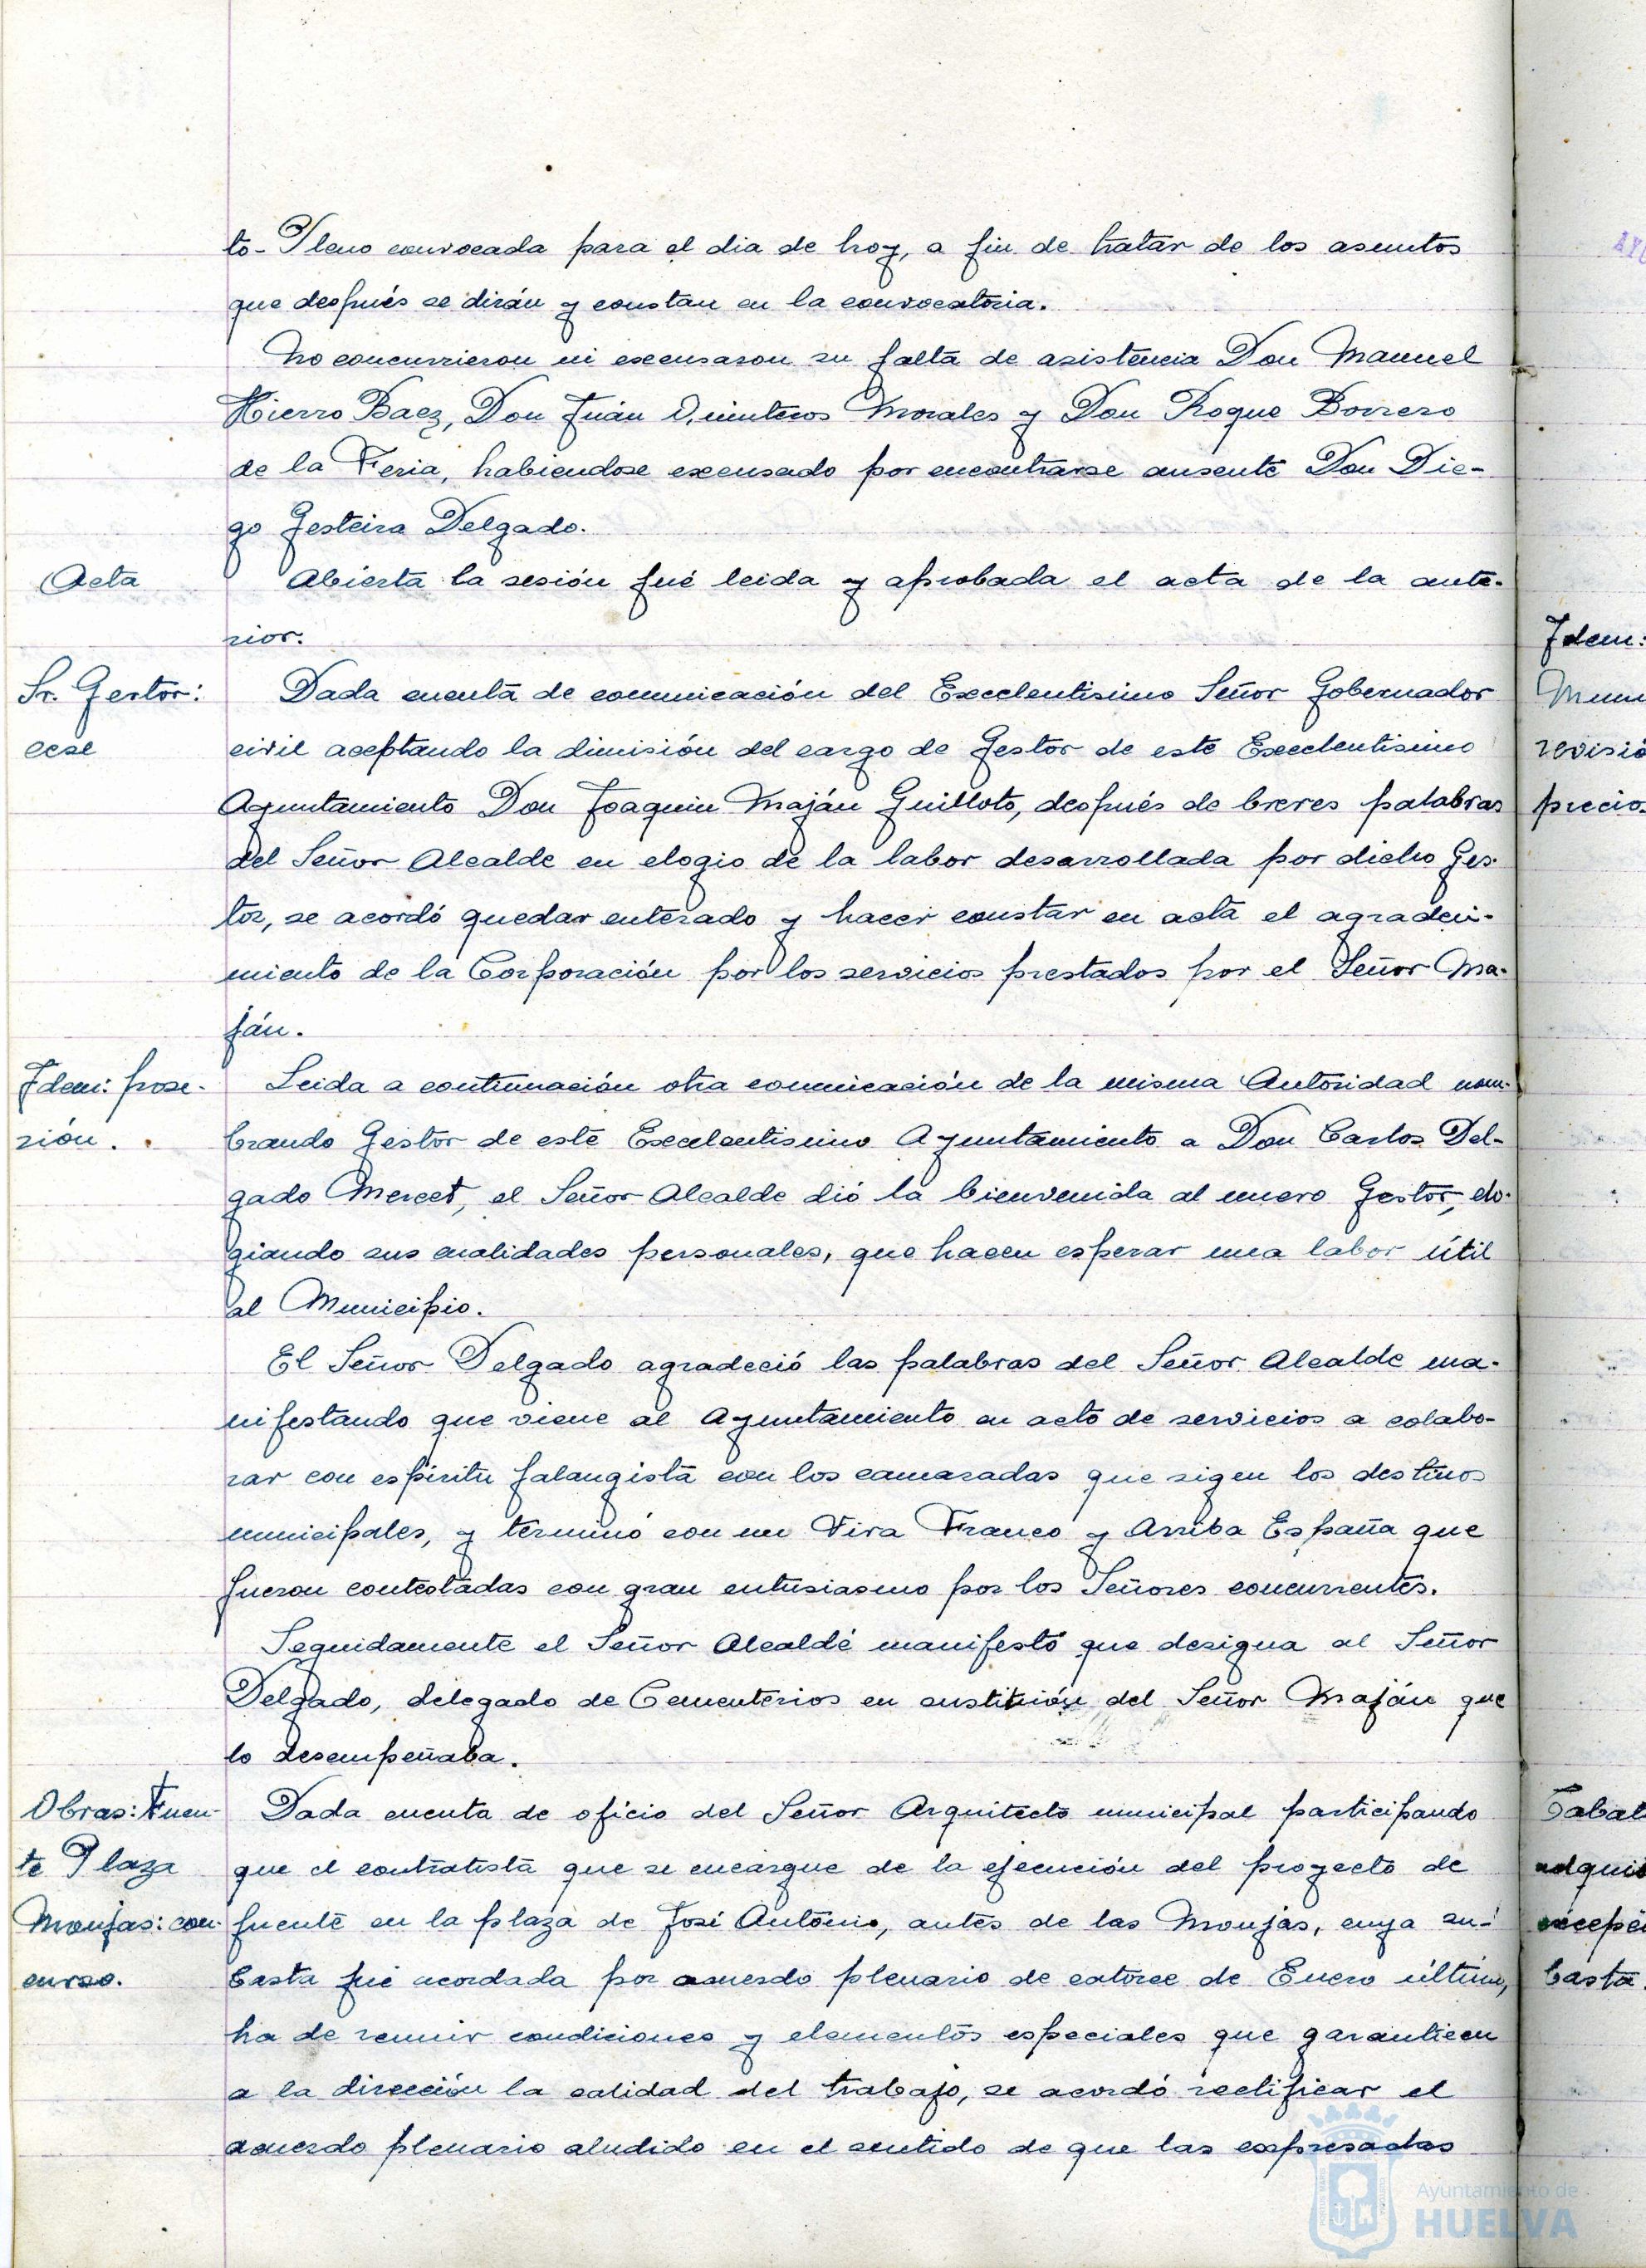 to-Pleno convocada para el dia de hoy, a fin de tratar de los asuntos
que después se dirán y constan en la convocatoria.
No concurrieron ni excusaron su falta de asistencia Don Manuel
Hierro Baez, Don Juán Quinteros Morales y Don Roque Borrero
de la Feria, habiendose excusado por encontrarse ausente Don Die-
go Gesteira Delgado.
Acta
Abierta la sesión fué leida y aprobada el acta de la ante-
rior.
Sr. Gestor:
cese
Dada cuenta de comunicación del Excelentisimo Señor Gobernador
civil aceptando la dimisión del cargo de Gestor de este Excelentisimo
Ayuntamiento Don Joaquin Maján Guilloto, después de breves palabras
del Señor Alcalde en elogio de la labor desarrollada por dicho Ges-
tor, se acordó quedar enterado y hacer constar en acta el agradeci-
miento de la Corporación por los servicios prestados por el Señor Ma-
ján.
Idem: pose-
sión.
Leida a continuación otra comunicación de la misma Autoridad nom-
brando Gestor de este Excelentisimo Ayuntamiento a Don Carlos Del-
gado Mercet, el Señor Alcalde dió la bienvenida al nuevo Gestor, elo-
giando sus cualidades personales, que hacen esperar una labor útil
al Municipio.
El Señor Delgado agradeció las palabras del Señor Alcalde ma-
nifestando que viene al Ayuntamiento en acto de servicios a colabo-
rar con espiritu falangista con los camaradas que rigen los destinos
municipales, y terminó con un Viva Franco y Arriba España que
fueron contestadas con gran entusiasmo por los Señores concurrentes.
Seguidamente el Señor Alcalde manifestó que designa al Señor
Delgado, delegado de Cementerios en sustitución del Señor Maján que
lo desempeñaba.
Obras: Fuen-
te Plaza
Monjas: con-
curso.
Dada cuenta de oficio del Señor Arquitecto municipal participando
que el contratista que se encargue de la ejecución del proyecto de
fuente en la plaza de José Antonio, antes de las Monjas, cuya su-
basta fué acordada por acuerdo plenario de catorce de Enero último,
ha de reunir condiciones y elementos especiales que garanticen
a la dirección la calidad del trabajo, se acordó rectificar el
acuerdo plenario aludido en el sentido de que las expresadas
Idem:
Muni
revisió
precios
Tabal
adquis
excepci
basta.
Ayuntamiento de
HUELVA